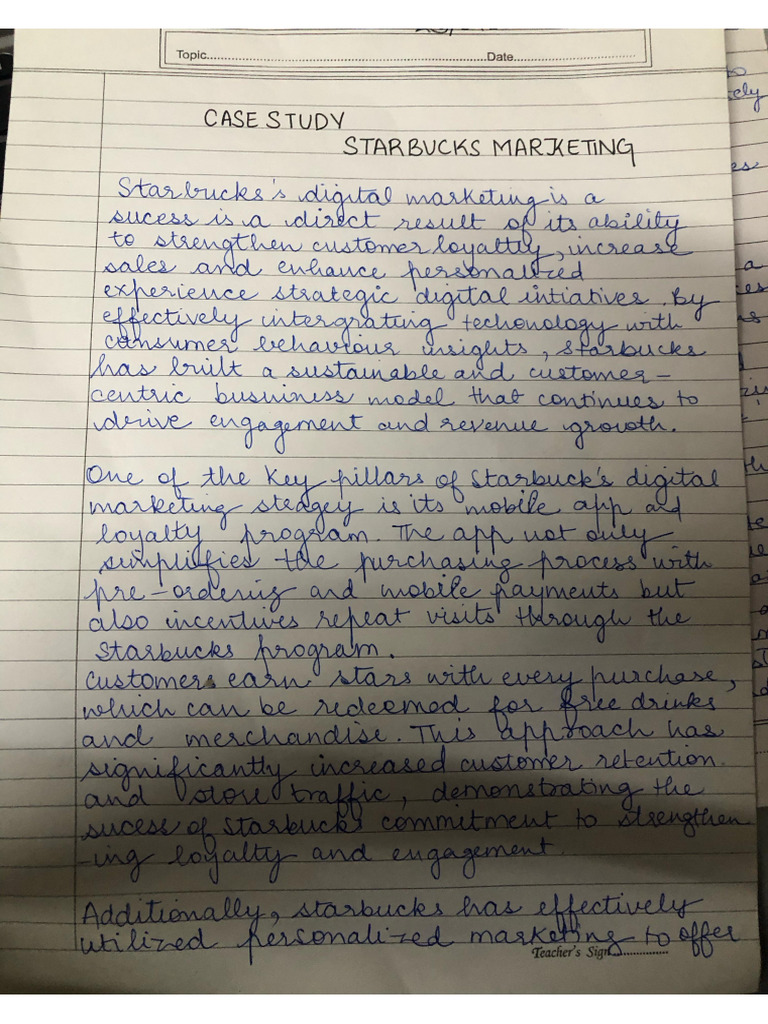 Topic.....................Date.....................
CASE STUDY
STARBUCKS MARKETING
Starbucks's digital marketing is a
sucess is a direct result of its ability
to strengthen customer loyaltty, increase
sales and enhance personalized
experience strategic digital intiatives. By
effectively intergrating techonology with
consumer behaviour insights, Starbucks
has built a sustainable and customer-
centric busuiness model that continues to
drive engagement and revenue growth.
One of the key pillars of Starbuck's digital
marketing steagey is its mobile app and
loyalty program. The app not only
simplifies the purchasing process with
pre-ordering and mobile payments but
also incentives repeat visits through the
Starbucks program.
Customers earn stars with every purchase,
which can be redeemed for free drinks
and merchandise. This approach has
significantly increased customer retention
and store traffic, demonstrating the
sucess of Starbucks commitment to strengthen
-ing loyalty and engagement.
Additionally, Starbucks has effectively
utilized personalized marketing to offer
Teacher's Sign...............